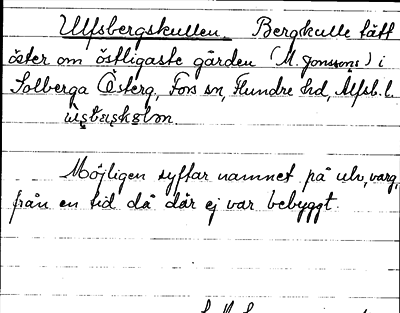 Ulfsbergskullen. Bergkulle tätt
öster om östligaste gården (M. Jonssons) i
Solberga Österg, Fors sn, Flundre hd, Älfsb. l.
Möjligen syftar namnet på ulv, varg,
från en tid då där ej var bebyggt.